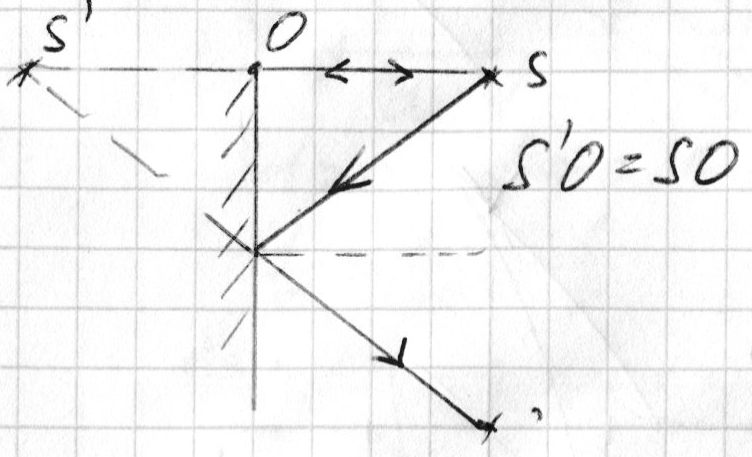 S' O
S
S'O = SO